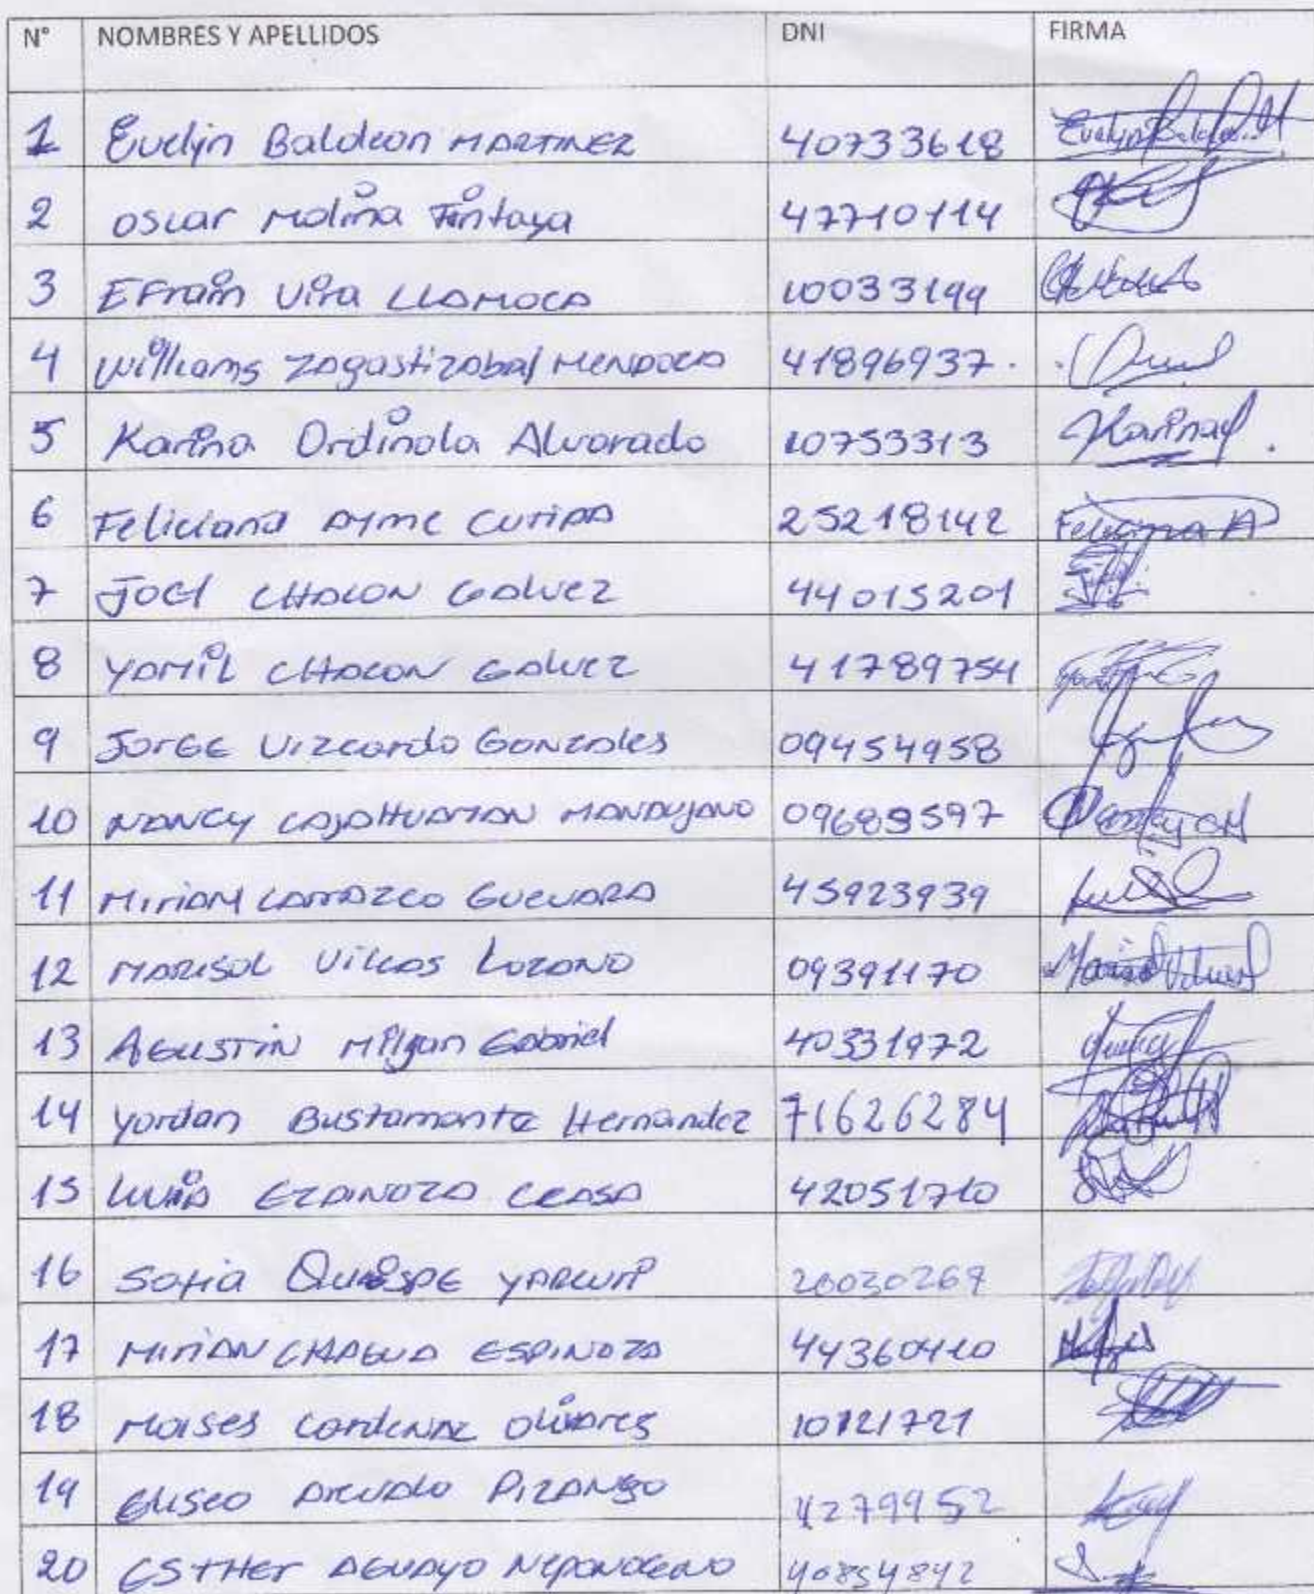 N° NOMBRES Y APELLIDOS DNI FIRMA
1 Evelyn Baldeon MARTINEZ 40733618 Evelyn Baldeon M
2 Oscar Molina Tintaya 47710114
3 EFrain Vira LLAMOCA 10033199
4 Williams Zagastizabal MENDOZA 41896937.
5 Karina Ordinola Alvarado 10753313 Karina
6 Feliciana Ayme CUTIPA 25218142 Feliciana A
7 JOEl CHACON GALVEZ 44015201
8 YAMIL CHACON GALVEZ 41789754
9 JORGE Vizcardo GONZALES 09454958
10 NANCY CAJAHUAMAN MANDUJANO 09689597
11 MIRIAM CARRAZCO GUEVARA 45923939
12 MARISOL Vilcas LOZANO 09391170 Marisol
13 AGUSTIN Milyan Gabriel 40331972
14 Yordan Bustamante Hernandez 71626284
15 EZPINOZA CCASA 42051710
16 Sofia QUISPE 20030269
17 MIRIAN CHAGUA ESPINOZA 44360410
18 Moises Cardenaz Olivares 10121721
19 Eliseo AREVALO PIZANGO 42799952
20 ESTHER AGUAYO 40854842